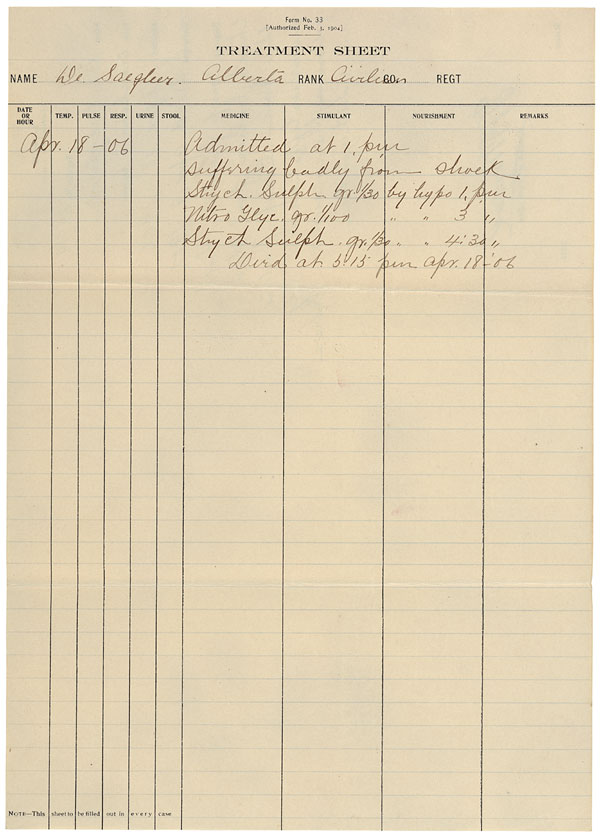 Form No. 33
[Authorized Feb. 3, 1904]
TREATMENT SHEET
NAME De Saegher. Alberta RANK Civilian CO. REGT
DATE OR HOUR TEMP. PULSE RESP. URINE STOOL MEDICINE STIMULANT NOURISHMENT REMARKS
Apr. 18-06 Admitted at 1. pm
suffering badly from shock
Strych. Sulph gr. 1/30 by hypo 1. pm
Nitro Glyc. gr. 1/100 " " 3 "
Strych Sulph. gr. 1/30 " " 4:30 "
Died at 5:15 pm Apr. 18-06
NOTE—This sheet to be filled out in every case